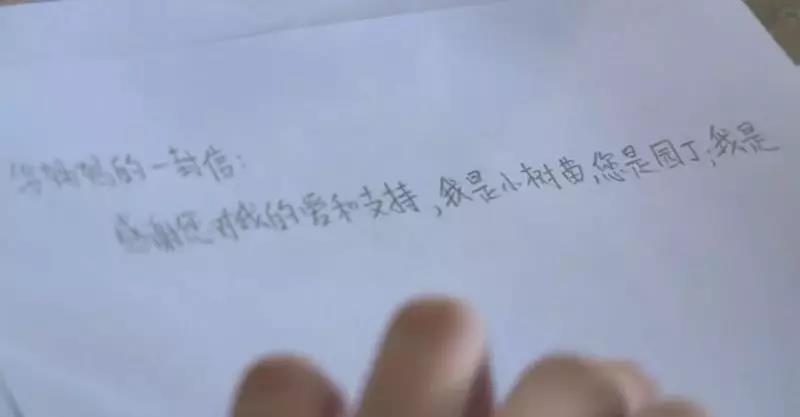 给妈妈的一封信:
感谢您对我的爱和支持,我是小树苗,您是园丁,我是